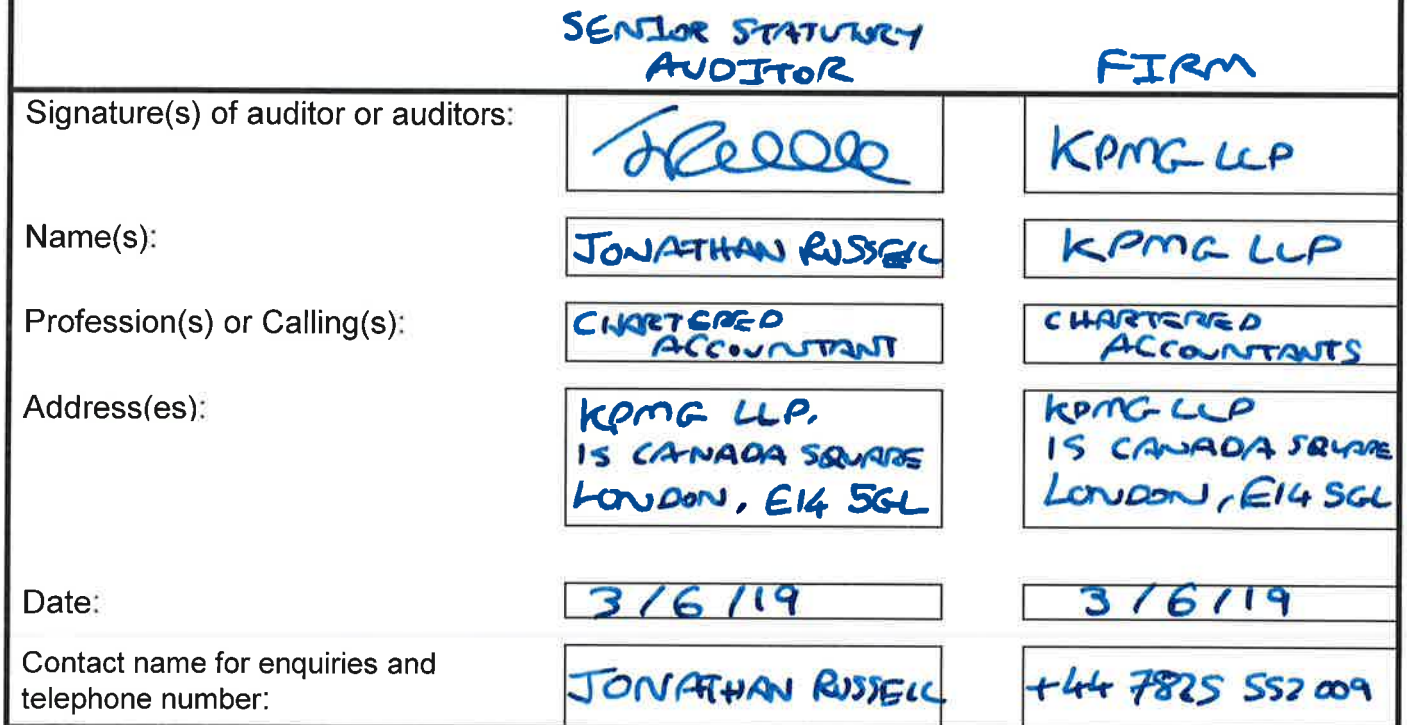 SENIOR STATUTORY
AUDITOR
FIRM
Signature(s) of auditor or auditors:
KPMG LLP
Name(s):
JONATHAN RUSSELL
KPMG LLP
Profession(s) or Calling(s):
CHARTERED
ACCOUNTANT
CHARTERED
ACCOUNTANTS
Address(es):
KPMG LLP,
15 CANADA SQUARE
LONDON, E14 5GL
KPMG LLP
15 CANADA SQUARE
LONDON, E14 5GL
Date:
3/6/19
3/6/19
Contact name for enquiries and
telephone number:
JONATHAN RUSSELL
+44 7825 552 009